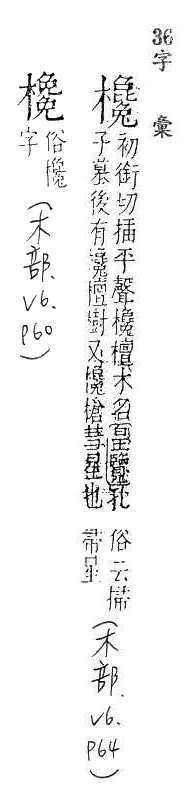 36字彙
欃
初銜切插平聲欃檀木名皇覽孔
子墓後有欃檀樹又欃槍彗星也
俗云掃
帚星
(木部、V6. P64)
欃
俗欃
字
(木部、V6. P60)